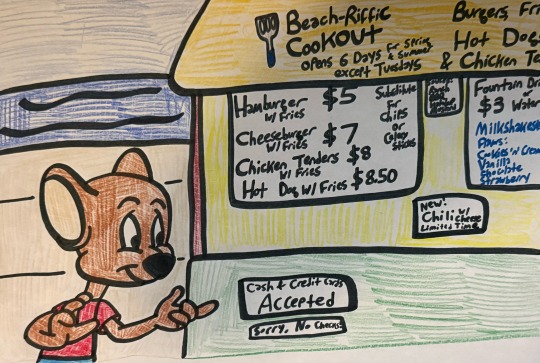 Beach-Riffic
Cookout
opens 6 Days for Spring & Summer
except Tuesdays
Burgers, Fri
Hot Dogs
& Chicken Te
Hamburger $5
W/ Fries
Cheeseburger $7
W/ Fries
Chicken Tenders $8
W/ Fries
Hot Dog W/ Fries $8.50
Substitute
For
Chips
or
Celery
Sticks
Fountain Dri
or
$3 Water
Milkshakes
Flavs:
Cookies 'n' Cream
Vanilla
Chocolate
Strawberry
New!
Chili w/ Cheese
Limited Time
Cash & Credit Cards
Accepted
Sorry, No Checks!